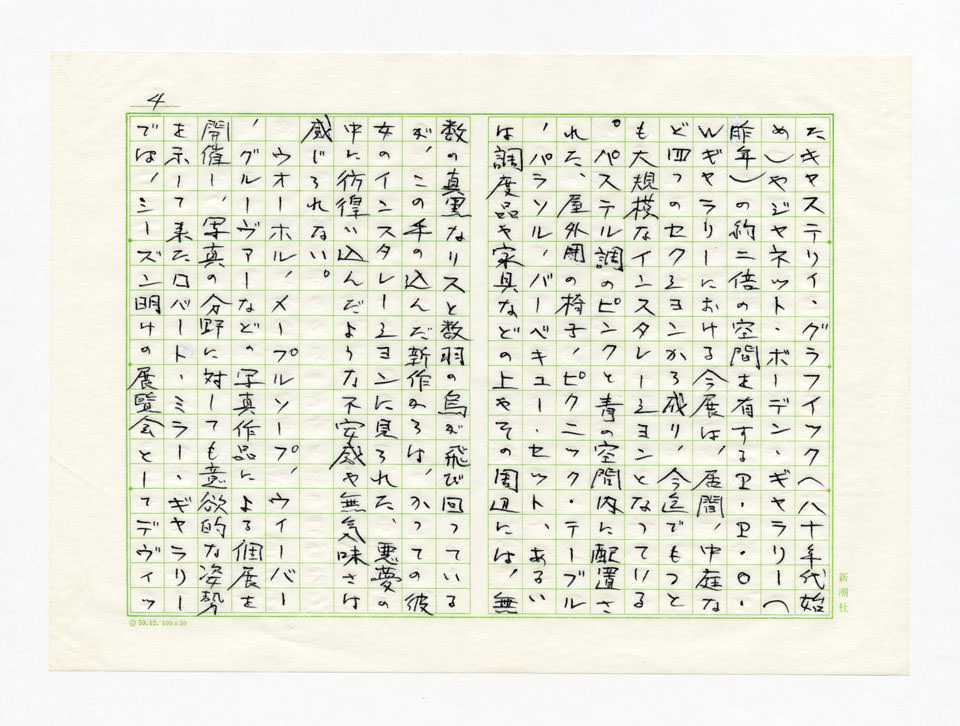 4
たキャステリイ・グラフイック〈八十年代始
め〉やジャネット・ボーデン・ギャラリー〈
昨年〉の約二倍の空間を有するP・P・O・
Wギャラリーにおける今展は、居間、中庭な
ど四つのセクションから成り、今迄でもっと
も大規模なインスタレーションとなっている
。ペステル調のピンクと青の空間内に配置さ
れた、屋外用の椅子、ピクニック・テーブル
、パラソル、バーベキュー・セット、あるい
は調度品や家具などの上やその周辺には、無
数の真黒なリスと数羽の烏が飛び回っている
が、この手の込んだ新作からは、かつての彼
女のインスタレーションに見られた、悪夢の
中に彷徨い込んだような不安感や無気味さは
感じられない。
ウオーホル、メープルソープ、ウイーバー
、グルーヴァーなどの写真作品による個展を
開催し、写真の分野に対しても意欲的な姿勢
を示して来たロバート・ミラー・ギャラリー
では、シーズン明けの展覧会としてデヴィッ
新潮社
59.12. 100×50